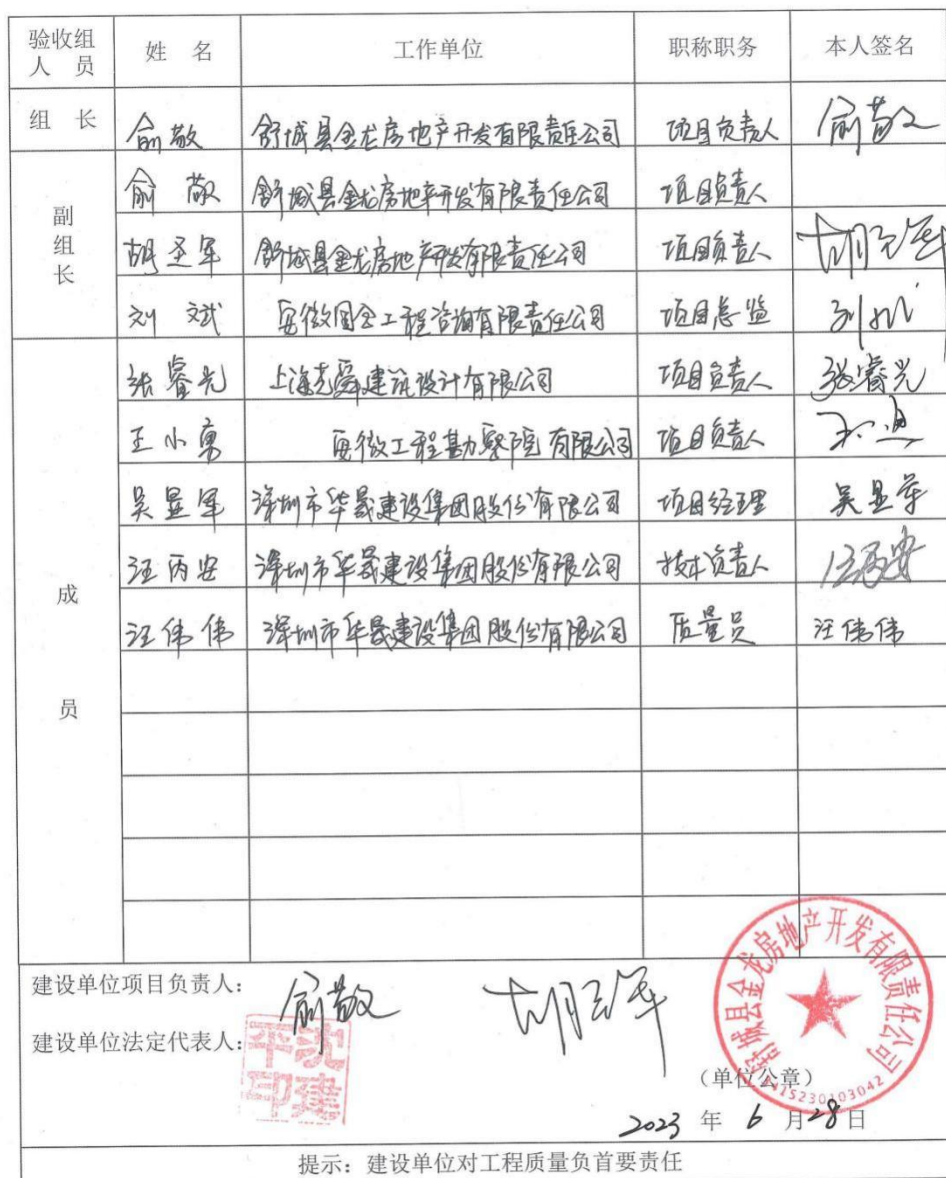 验收组人员 姓 名 工作单位 职称职务 本人签名
组 长 俞敬 舒城县金龙房地产开发有限责任公司 项目负责人 俞敬
副组长 俞敬 舒城县金龙房地产开发有限责任公司 项目负责人
胡圣军 舒城县金龙房地产开发有限责任公司 项目负责人 胡圣军
刘斌 安徽国金工程咨询有限责任公司 项目总监 刘斌
成员 张睿光 上海尧舜建筑设计有限公司 项目负责人 张睿光
王小勇 安徽工程勘察院有限公司 项目负责人
吴显军 深圳市华晟建设集团股份有限公司 项目经理 吴显军
汪丙安 深圳市华晟建设集团股份有限公司 技术负责人 汪丙安
汪伟伟 深圳市华晟建设集团股份有限公司 质量员 汪伟伟
建设单位项目负责人： 俞敬 胡圣军
建设单位法定代表人： 沈建平印
舒城县金龙房地产开发有限责任公司
3415230103042
（单位公章）
2023 年 6 月 28 日
提示：建设单位对工程质量负首要责任